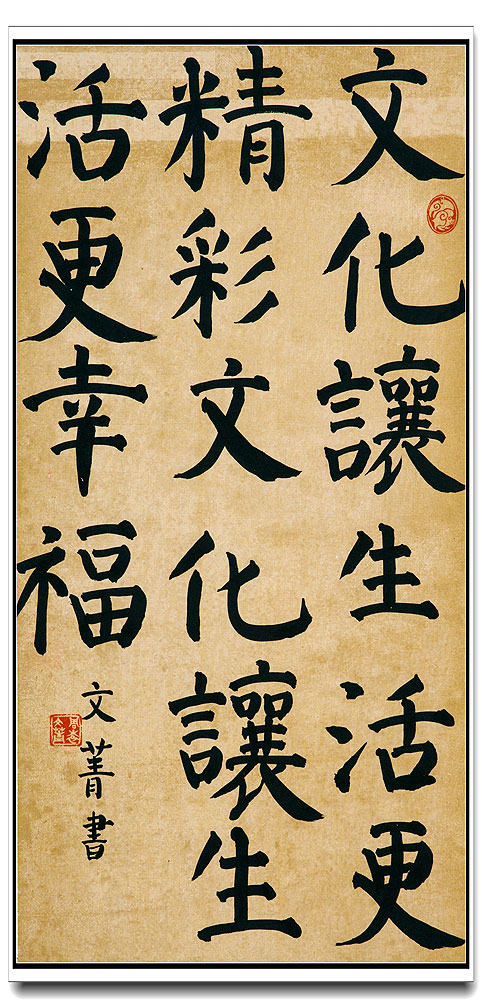 文化讓生活更
精彩文化讓生
活更幸福
文菁書